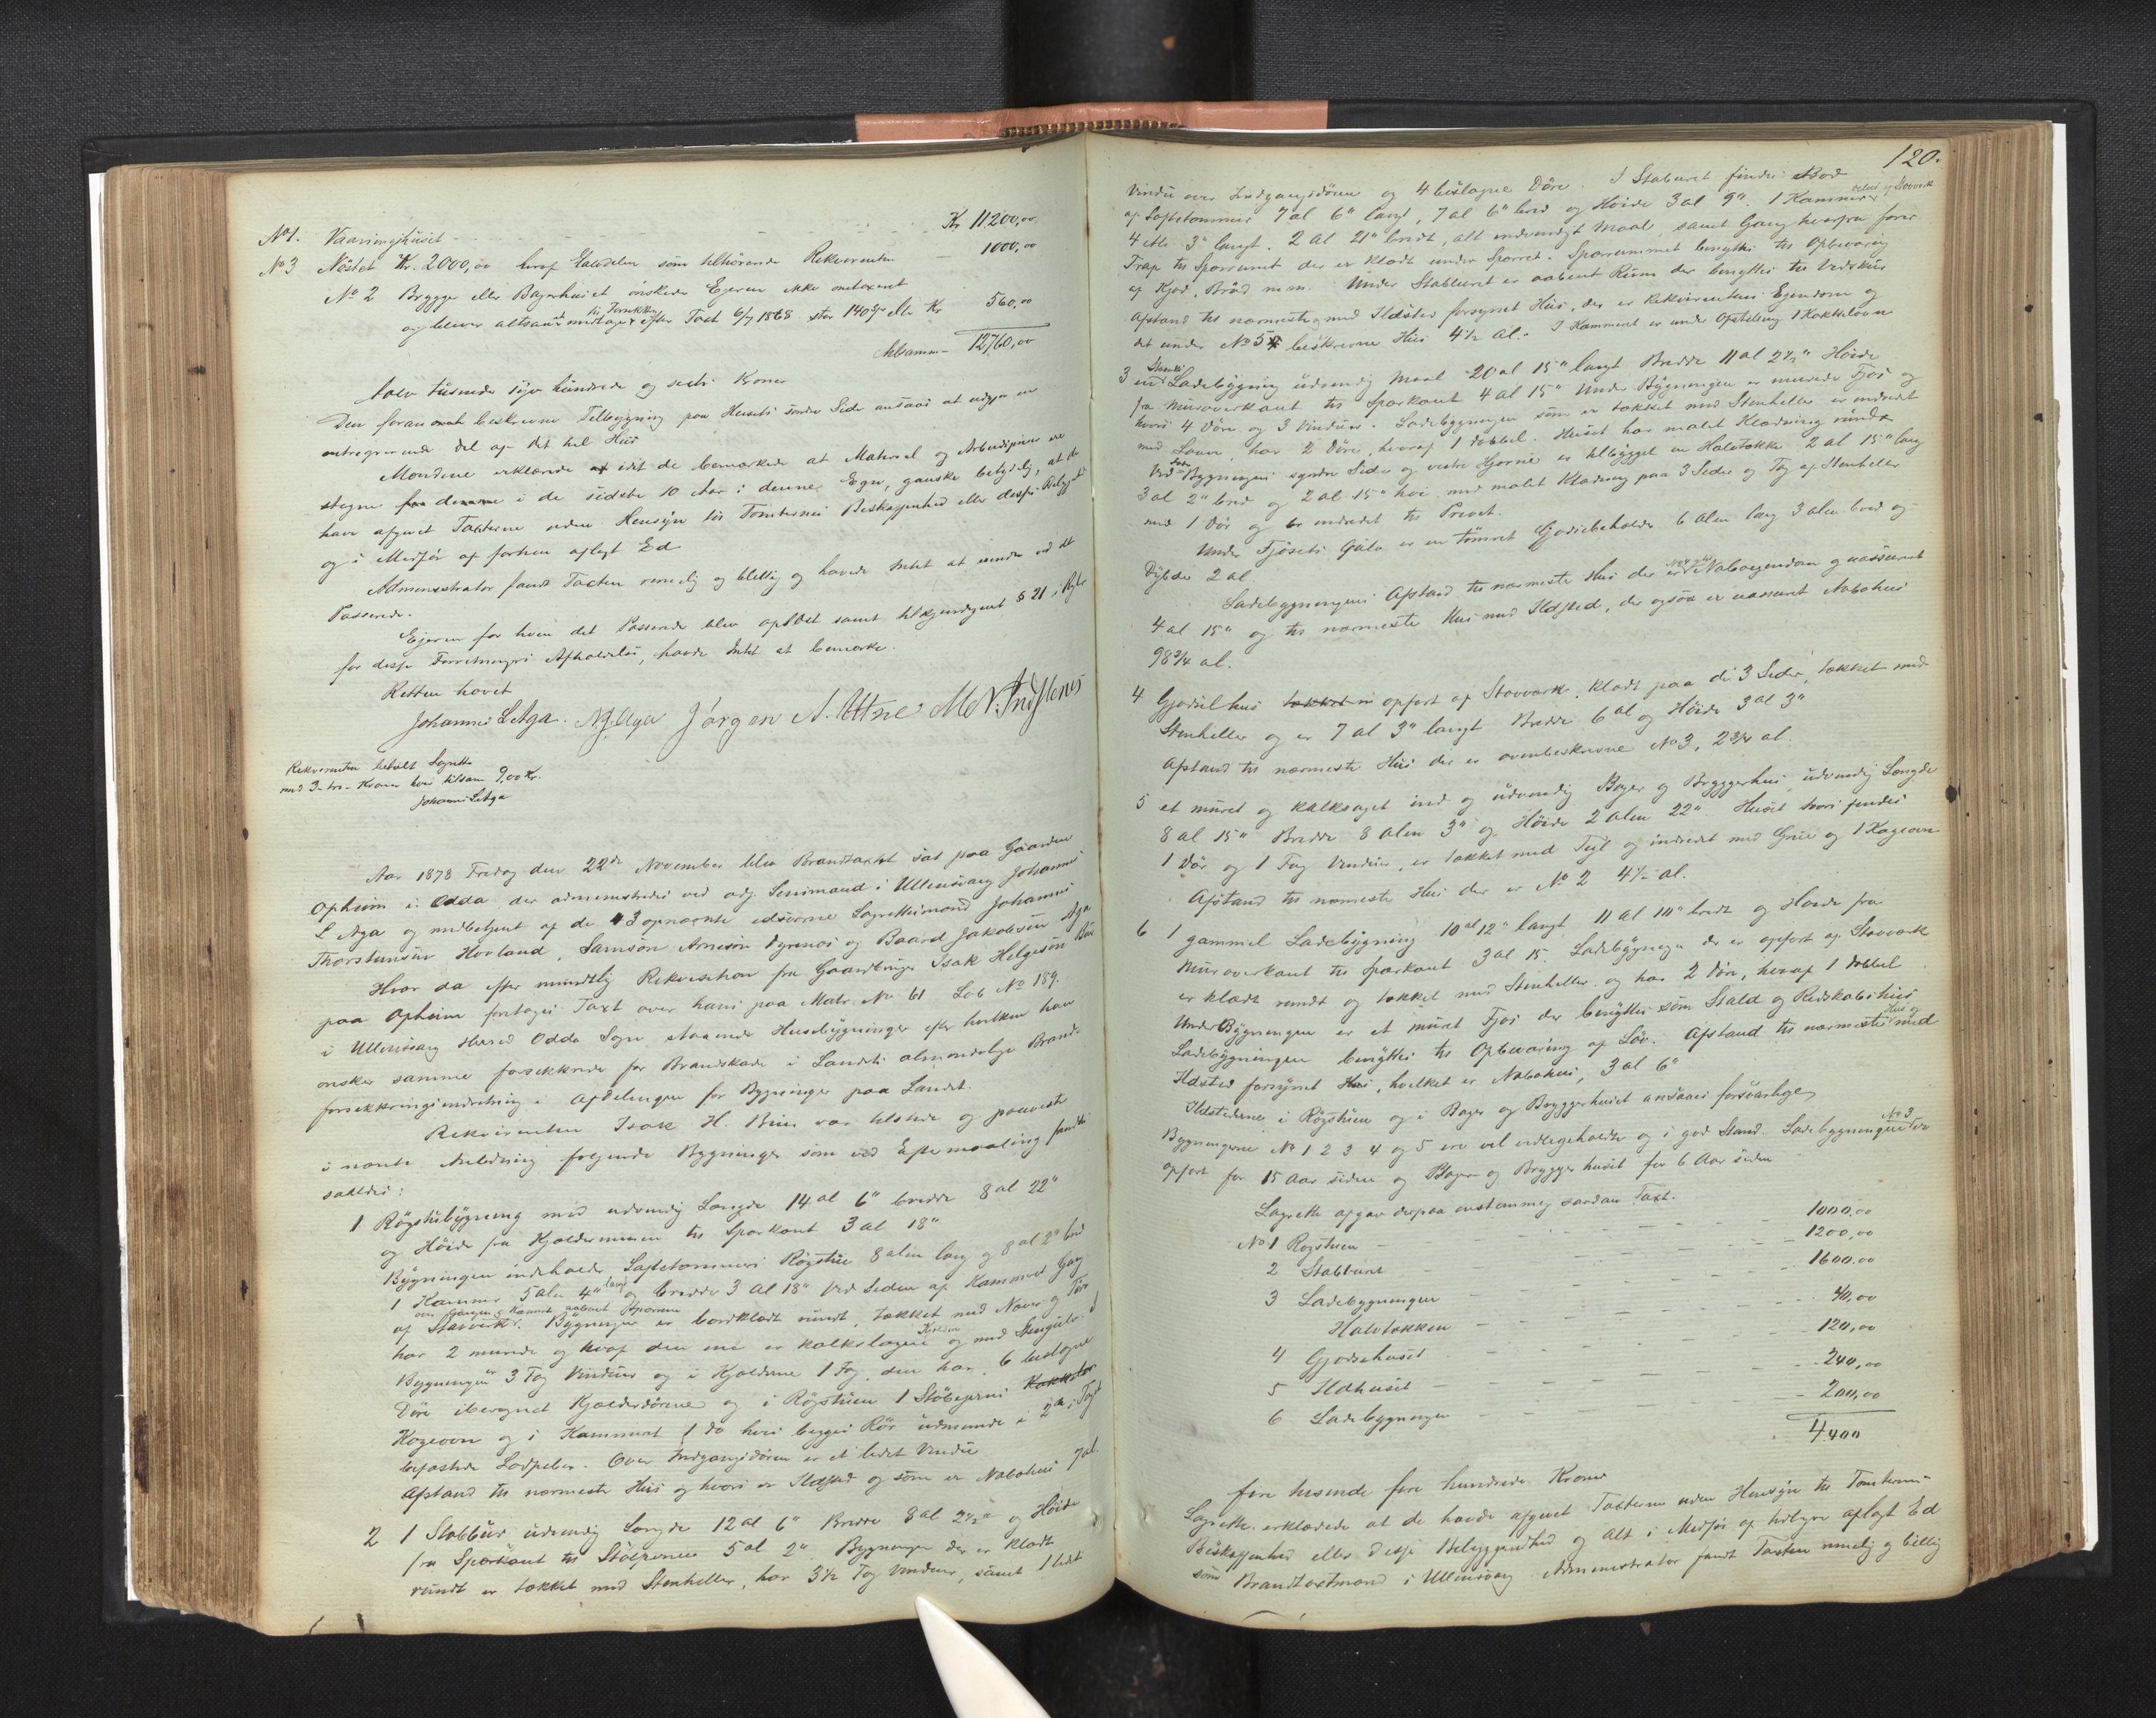 No 1. Vaaningshuset - - - - Kr 11200,00
No 3 Nøstet Kr. 2000,00 heraf Halvdelen som tilhørende Rekvirenten 1000,00
No 2 Brygge eller Bagerhuset ønskede Ejeren ikke omtaxeret
og bliver altsaa at modtage til Forsikkring efter Taxt 6/7 1868 stor 140 Spd eller Kr 560,00
tilsammen 12760,00
tolv tusinde syv hundrede og seksti Kroner
Den foran omt beskrevne Tilbygning paa Husets søndre Side ansaaes at udgjøre en
integrerende Del af det hele Hus
Mændene erklærede idet de bemærkede at Materiel og Arbeidspriser ere
stegne i de sidste 10 Aar i denne Egn, ganske betydelig, at de
have afgivet Taxterne uden Hensyn til Tomternes Beskaffenhed eller disses Beliggenhed
og i Medfør af forhen aflagt Ed
Administrator fandt Taxten rimelig og billig og havde Intet at erindre ved det
Passerede.
Ejeren for hvem det Passerede blev oplæst samt tilkjendegivet § 21 i Regler
for disse Forretningers Afholdelse, havde Intet at bemærke.
Retten hævet
Johannes L Aga. N J Aga Jørgen N.
Rekvirenten betalt Lagrette
med 3 - tre - Kroner hver tilsam 9,00 Kr.
Johannes L Aga
Aar 1878 Fredag den 22de November blev Brandtaxtret sat paa Gaarden
Opheim i Odda, der administreredes ved adj. Lensmand i Ullensvang Johannes
L Aga og medbetjent af de 3 opnævnte edsvorne Lagrettesmænd Johannes
Thorsteinsen Hovland, Samson Arnesen Tyrenes og Baard Jakobsen Aga
Hvor da efter mundtlig Rekvisition fra Gaardbruger Isak Helgesen Buer
paa Opheim foretoges Taxt over hans paa Matr. No 61 Løb No 189.
i Ullensvang Herred Odda Sogn staaende Husebygninger efter hvilken han
ønsker samme forsikkrede for Brandskade i Landets almindelige Brand-
forsikkringsindretning i Afdelingen for Bygninger paa Landet.
Rekvirenten Isak H. Buer var tilstede og paaviste
i nævnte Anledning følgende Bygninger som ved Eftermaaling fandtes
saaledes:
1 Røgstuebygning med udvendig Længde 14 al 6" bredde 8 al 22"
og Høide fra Kjældermuren til Sparkant 3 al 18"
Bygningen indeholder Laftetømmers Røgstue 8 alen lang og 8 al 2" bred
1 Kammer 5 alen 4" lang og bredde 3 al 18" Ved Siden af Kammeret Gang
af Stavverk. over Gangen & Kammeret aabent Sparrum Bygningen er bordklædt rundt, tækket med Næver og Torv
har 2 murede og hvoraf den ene er kalkslagen Kjældere og med Stengulv. I
Bygningen er 3 Fag Vinduer og i Kjælderne 1 Fag, den har 6 beslagne
Døre iberegnet Kjælderdørene og i Røgstuen 1 Støbejerns
Kogeovn og i Kammeret 1 do hvis begges Rør udmunde i 2de i Taget
befæstede Lodpiber. Over Indgangsdøren er et lidet Vindu
Afstand til nærmeste Hus og hvori er Ildsted og som er Nabohus 7 al.
2 1 Stabbur udvendig Længde 12 al 6" Bredde 8 al 2½" og Høide
fra Sparkant til Stolperne 5 al 2" Bygningen der er klædt
rundt er tækket med Stenheller, har 3½ Fag Vinduer, samt 1 lidet
120.
Vindu over Indgangsdøren og 4 beslagne Døre. I Staburet findes Bod
af Laftetømmer 7 al 6" langt, 7 al 6" bred og Høide 3 al 9". 1 Kammer
4 al. 3" langt. 2 al 21" bredt, alt indvendigt Maal, samt Gang hvorfra fører
Trap til Sparrumet der er klædt under Sparret. Sparrummet benyttes til Opbevaring
af Kjød, Brød m.m. Under Stabburet er aabent Rum der benyttes til Vedskur
Afstand til nærmeste med Ildsted forsynet Hus, der er Rekvirentens Ejendom og
det under No 5 beskrevne Hus 4½ al. I Kammeret er under Opstilling 1 Kakkelovn
3 en Ladebygning udvendig Maal 20 al 15" langt Bredde 11 al 2½" Høide
fra Muroverkant til Sparkant 4 al 15" Under Bygningen er murede Fjøs og
hvori 4 Døre og 3 Vinduer. Ladebygningen som er tækket med Stenheller er indredet
med Louer, har 2 Døre, hvoraf 1 dobbel. Huset har malet Klædning rundt
Ved Bygningens syndre Side og vestre Hjørne er tilbygget en Halvtække 2 al 15" lang
3 al 2" bred og 2 al 15" høi med malet Klædning paa 3 Sider og Tag af Stenheller
med 1 Dør og er indredet til Privet.
Under Fjøsets Gulv er en tømret Gjødselbeholder 6 Alen lang 3 alen bred og
Dybde 2 al
Ladebygningens Afstand til nærmeste Hus der er Naboejendom og uassureret
4 al 15" og til nærmeste Hus med Ildsted, der ogsaa er uassureret Nabohus
98¾ al.
4 Gjødselhus opført af Stavværk, klædt paa de 3 Sider, tækket med
Stenheller og er 7 al 3" langt Bredde 6 al og Høide 3 al 3"
Afstand til nærmeste Hus der er ovenbeskrevne No 3, 2¾ al.
5 et muret og kalkslaget ind og udvendig Bager og Bryggerhus udvendig Længde
8 al 15" Bredde 8 alen 3" og Høide 2 alen 22" Huset hvori findes
1 Dør og 1 Fag Vinduer, er tækket med Tegl og indredet med Grue og 1 Bageovn
Afstand til nærmeste Hus der er No 2 4½ al.
6 1 gammel Ladebygning 10 al 12" langt 11 al bredt og Høide fra
Muroverkant til Sparkant 3 al 15. Ladebygningen der er opført af Stavværk
er klædt rundt og tækket med Stenheller og har 2 Døre, hvoraf 1 dobbel
Under Bygningen er et muret Fjøs der benyttes som Stald og Redskabshus
Ladebygningen benyttes til Opbevaring af Løv. Afstand til nærmeste Hus og med
Ildsted forsynet, hvilket er Nabohus, 3 al 6"
Ildstederne i Røgstuen og i Bager og Bryggerhuset ansaaes forsvarlige
Bygningerne No 1 2 3 4 og 5 ere vel vedligeholdte og i god Stand. Ladebygningen No 3 er
opført for 15 Aar siden og Bager og Bryggerhuset for 6 Aar siden
Lagrette afgav derpaa enstemmig saadan Taxt.
No 1 Røgstuen - - - - 1000,00
2 Stabburet - - - - 1200,00
3 Ladebygningen - - - - 1600,00
Halvtækken - - - - 40,00
4 Gjødselhuset - - - - 120,00
5 Ildhuset - - - - 240,00
6 Ladebygningen - - - - 200,00
4400
fire tusinde fire hundrede Kroner
Lagrette erklærede at de havde afgivet Taxterne uden Hensyn til Tomternes
Beskaffenhed eller disses Beliggenhed og Alt i Medfør af tidligere aflagt Ed
som Brandtaxtmænd i Ullensvang. Administrator fandt Taxten rimelig og billig